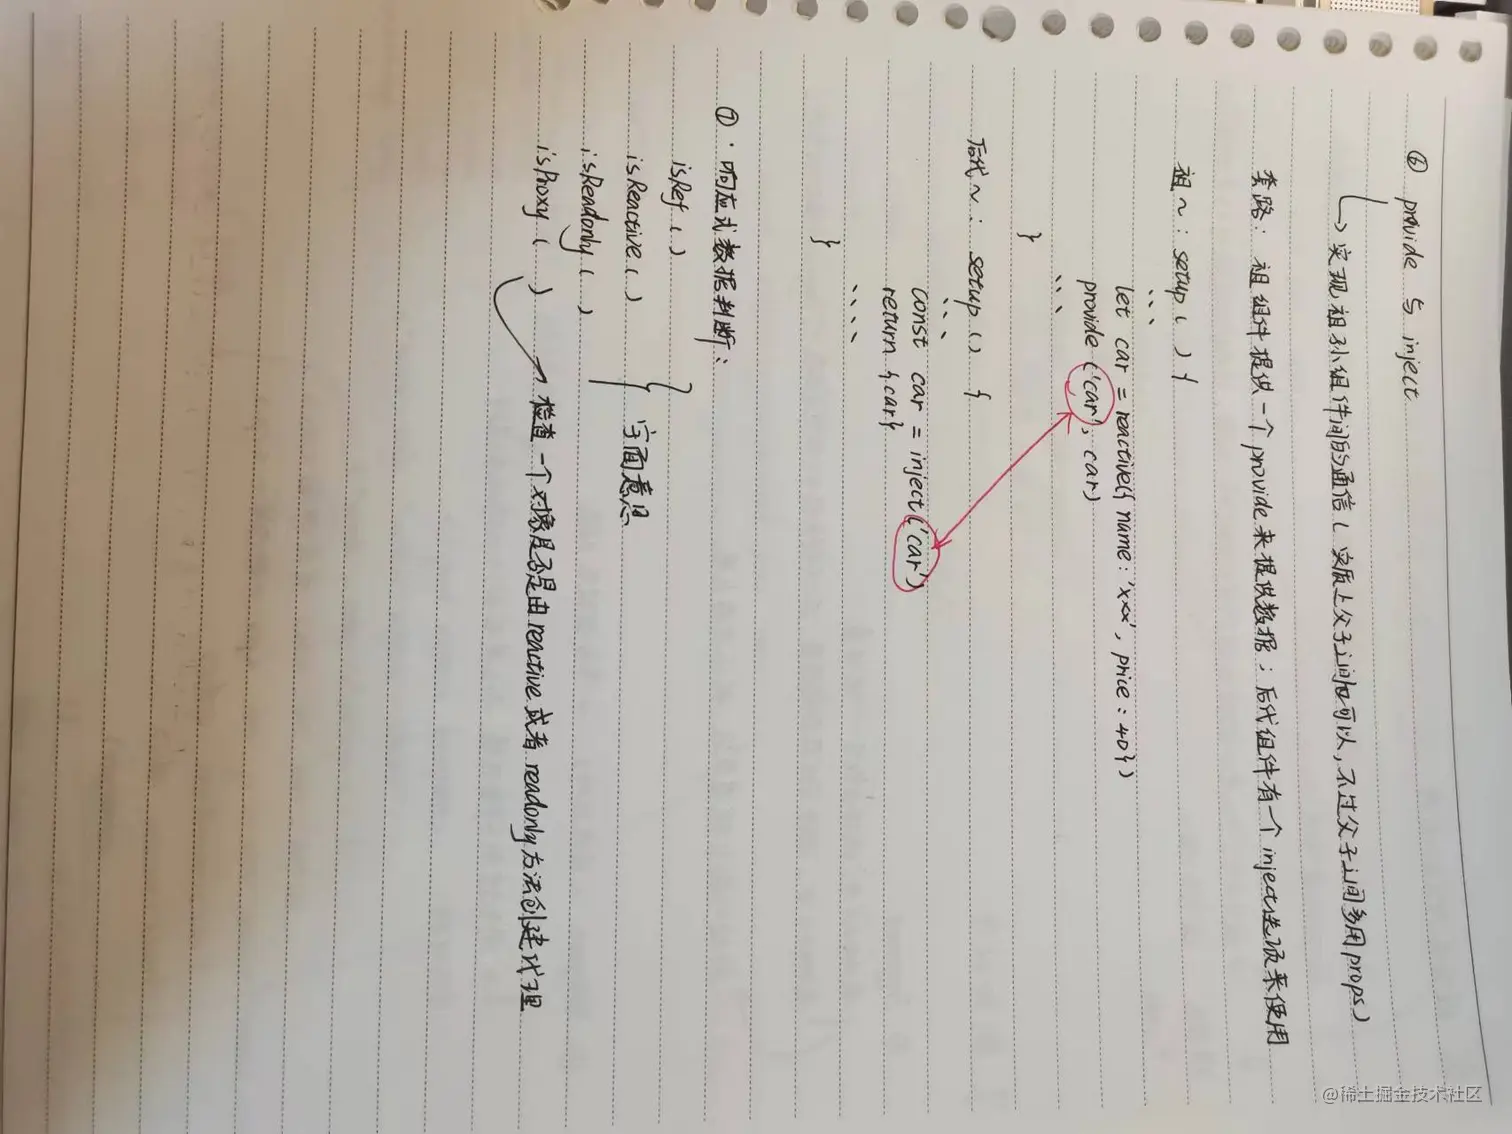 ⑥ provide 与 inject
↳ 实现祖孙组件间的通信(实质上父子之间也可以,不过父子之间多用props)
套路: 祖组件提供一个provide来提供数据;后代组件有一个inject选项来使用
祖~: setup ( ) {
...
let car = reactive({ name: 'xxx', price: 40})
provide ('car', car)
...
}
后代~: setup () {
...
const car = inject('car')
return {car}
....
}
⑦. 响应式数据判断:
isRef ( )
isReactive ( )
isReadonly ( )
字面意思
isProxy ( ) → 检查一个对象是否是由reactive或者readonly方法创建代理
@稀土掘金技术社区